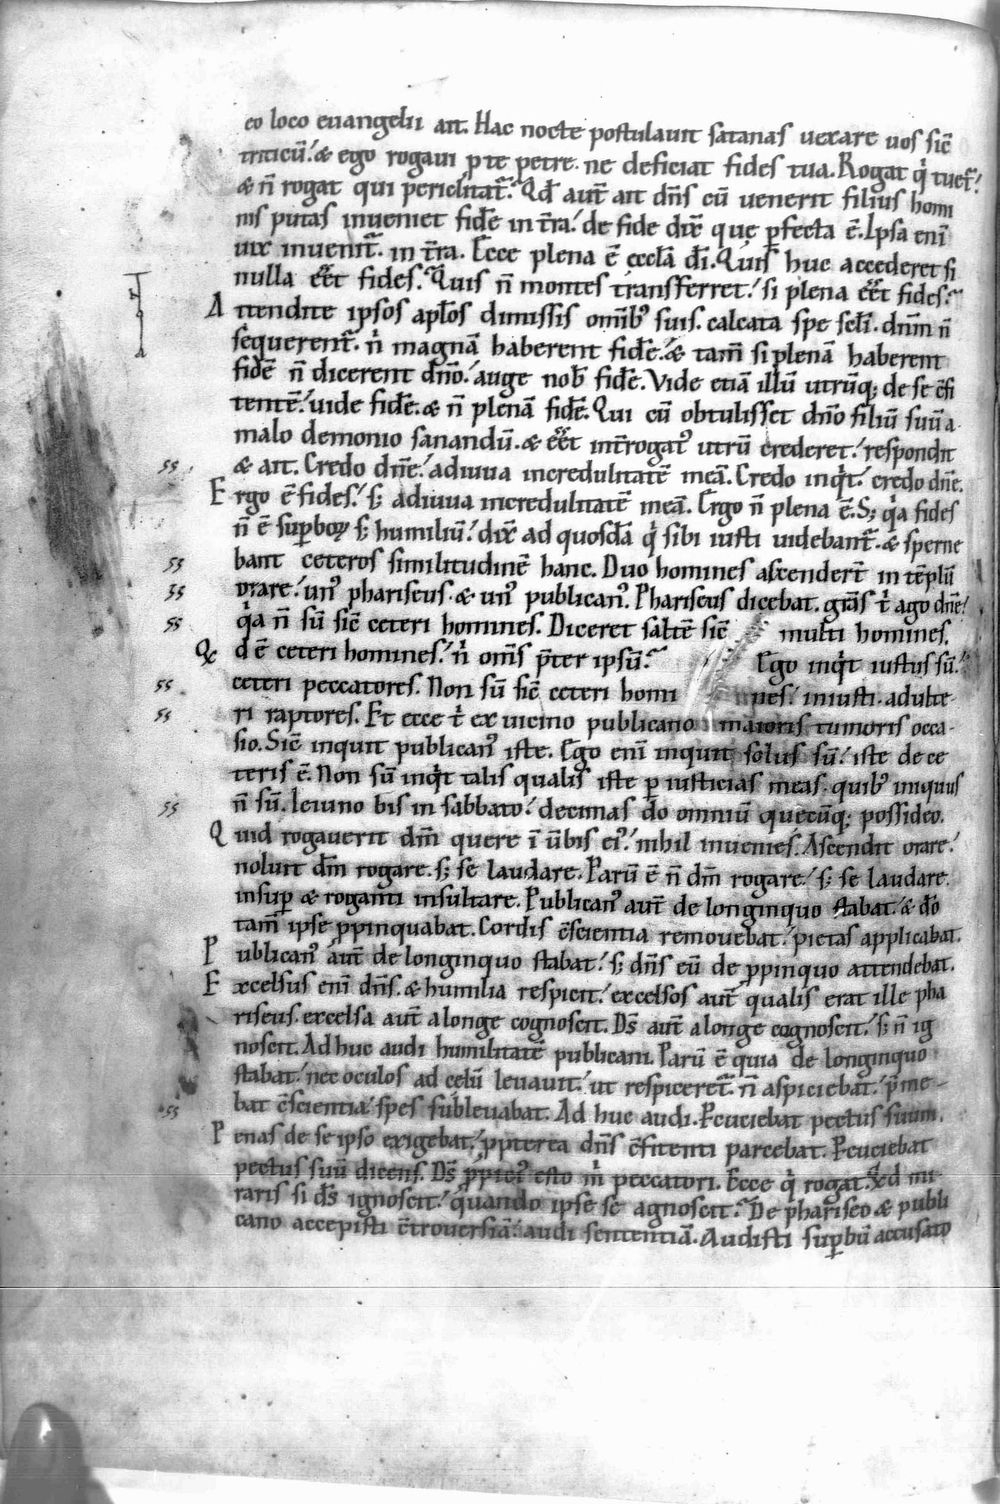 eo loco euangelii ait. Hac nocte postulauit satanas uexare uos sic̄
triticū. & ego rogaui ꝓ te petre. ne deficiat fides tua. Rogat q̇ tuet᷒.
& n̄ rogat qui periclitat᷒. Qd̄ aut̄ ait dn̄s cū uenerit filius homi
nis putas inueniet fidē in t̄ra. de fide dix̄ que ꝑfecta ē. Ipsa enī
uix inuenit᷒ in t̄ra. Ecce plena ē eccl̄a dī. Quis huc accederet si
nulla eēt fides. Quis n̄ montes transferret. si plena eēt fides.
Attendite ipsos apl̄os dimissis omīb; suis. calcata spe scl̄i. dnm̄ n̄
sequerent᷒. n̍ magnā haberent fidē. & tam̄ si plenā haberent
fidē n̄ dicerent dn̄o. auge nob̄ fidē. Vide etiā illū utrūq; de se c̄fi
tentē. uide fidē. & n̄ plenā fidē. Qui cū obtulisset dn̄o filiū suū a
malo demonio sanandū. & eēt int̄rogatꝰ utrū crederet. respondit
ss & ait. Credo dn̄e. adiuua incredulitatē meā. Credo inq̍t. credo dn̄e.
Ergo ē fides. s; adiuua incredulitatē meā. Ergo n̄ plena ē. S; q̍a fides
n̄ ē suꝑboꝝ s; humiliū. dix̄ ad quosdā q̍ sibi iusti uidebant᷒. & sperne
ss bant ceteros similitudinē hanc. Duo homines ascender̄t in tēplū
ss orare. unꝰ phariseus. & unꝰ publicanꝰ. Phariseus dicebat. gr̄as t̍ ago dn̄e.
ss q̍a n̄ sū sic̄ ceteri homines. Diceret saltē sic̄ multi homines.
Qd ē ceteri homines. n̍ om̄s p̄ter ipsū. Ego inq̍t iustus sū.
ss ceteri peccatores. Non sū sic̄ ceteri homi nes. iniusti. adulte
ss ri raptores. Et ecce t̍ ex uicino publicano maioris tumoris occa-
sio. Sic̄ inquit publicanꝰ iste. Ego enī inquit solus sū. iste de ce
teris ē. Non sū inq̍t talis qualis iste ꝑ iusticias meas. quibꝰ iniquus
ss n̄ sū. Ieiuno bis in sabbato. decimas do omniū quecūq; possideo.
Quid rogauerit dm̄ quere ī ūbis eiꝰ. nihil inuenies. Ascendit orare.
noluit dm̄ rogare. s; se laudare. Parū ē n̄ dm̄ rogare. s; se laudare.
insuꝑ & roganti insultare. Publicanꝰ aut̄ de longinquo stabat. & dō
tam̄ ipse ꝓpinquabat. Cordis c̄scientia remouebat. pietas applicabat.
Publicanꝰ aut̄ de longinquo stabat. s; dn̄s eū de ꝓpinquo attendebat.
Excelsus enī dn̄s. & humilia respicit. excelsos aut̄ qualis erat ille pha
riseus. excelsa aut̄ a longe cognoscit. Ds̄ aut̄ a longe cognoscit. s; n̄ ig
noscit. Ad huc audi humilitatē publicani. Parū ē quia de longinquo
stabat. nec oculos ad celū leuauit. ut respiceret᷒ n̄ aspiciebat. p̍me-
ss bat c̄scientia. spes subleuabat. Ad huc audi. Ꝑcuciebat pectus suum.
Penas de se ipso exigebat. ꝓpterea dn̄s c̄fitenti parcebat. Ꝑcuciebat
pectus suū dicens. Ds̄ ꝓpiciꝰ esto m̍ peccatori. Ecce q̍ rogat. Qd mi
raris si ds̄ ignoscit. quando ipse se agnoscit. De phariseo & publi
cano accepisti c̄trouersiā. audi sententiā. Audisti suꝑbū accusato